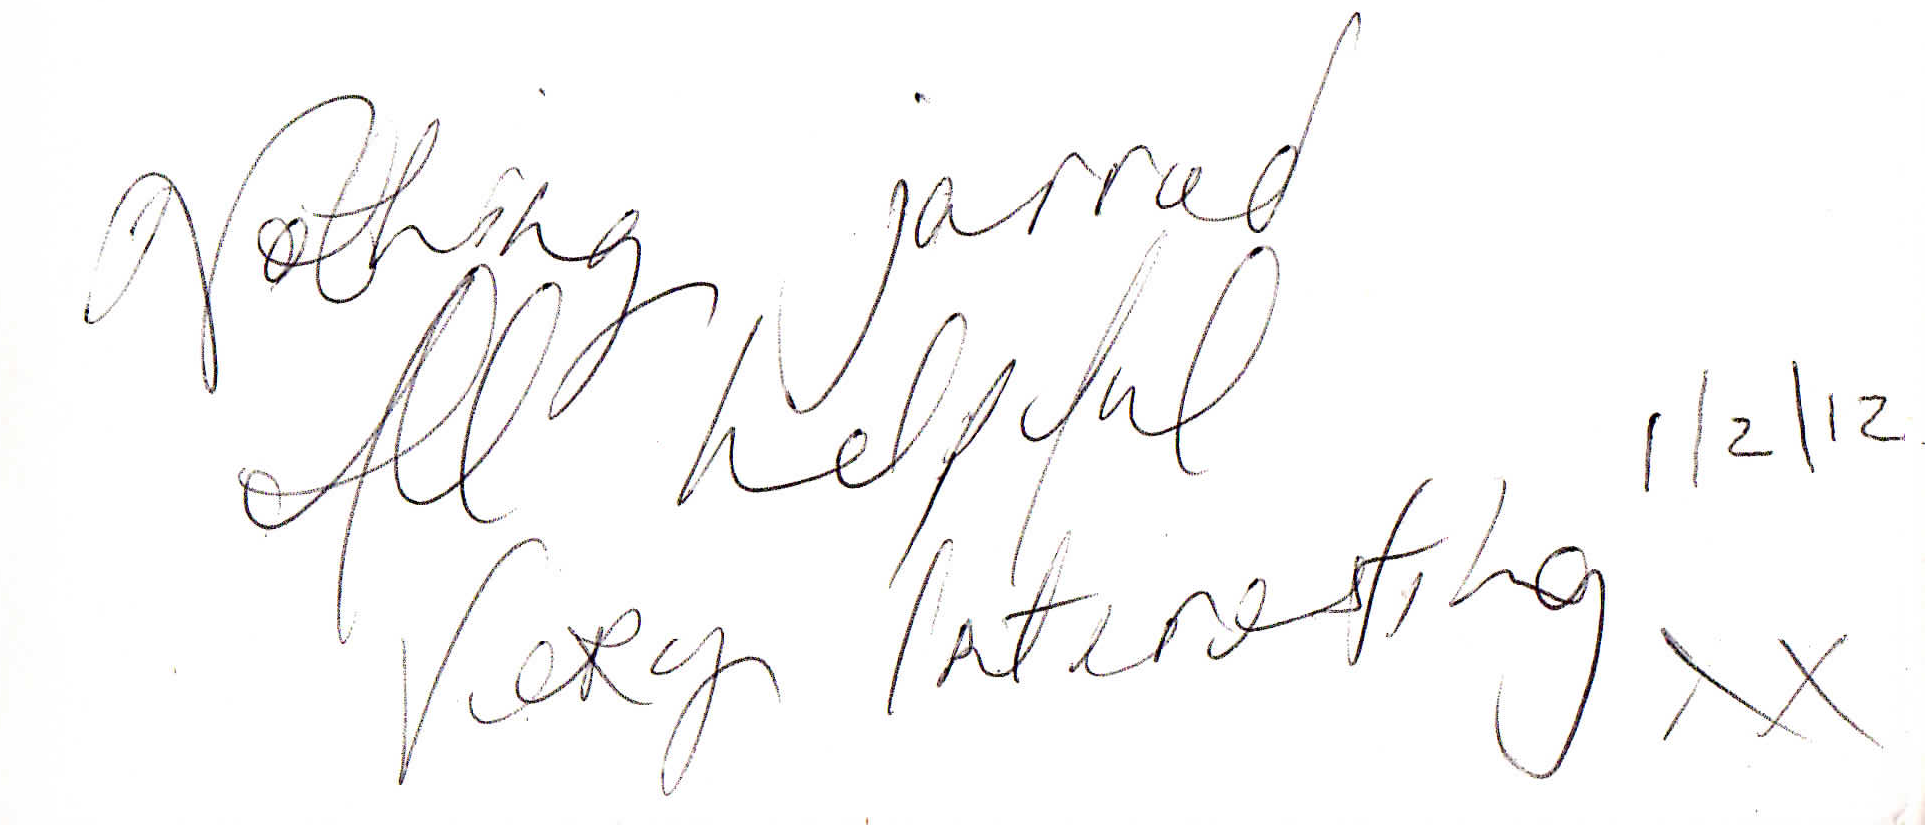 Nothing jarred
All helpful
1/2/12
Very Interesting
XX